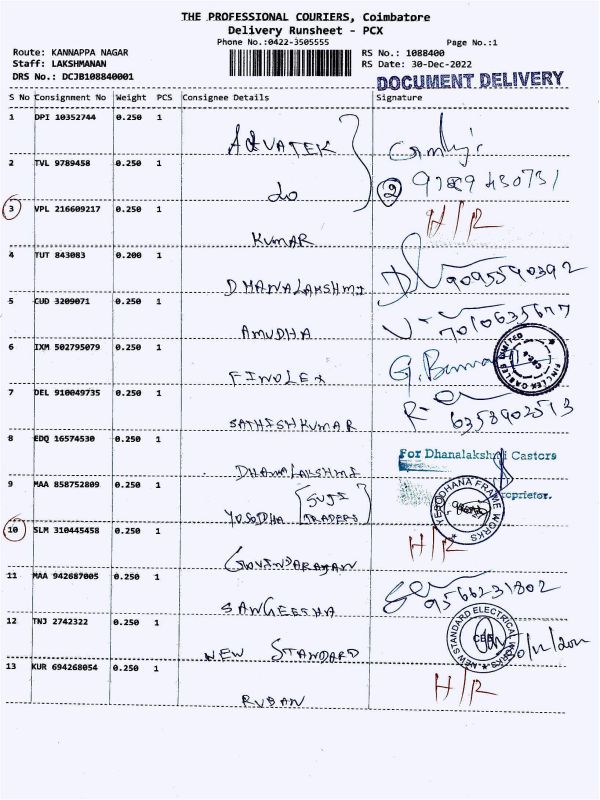 THE PROFESSIONAL COURIERS, Coimbatore
Delivery Runsheet - PCX
Phone No.:0422-3505555
Page No.:1
Route: KANNAPPA NAGAR
RS No.: 1088400
Staff: LAKSHMANAN
RS Date: 30-Dec-2022
DRS No.: DCJB108840001
DOCUMENT DELIVERY
S No Consignment No Weight PCS Consignee Details Signature
1 DPI 10352744 0.250 1 ADVATEK
2 TVL 9789458 0.250 1 do 2
3 VPL 216609217 0.250 1 KUMAR H/R
4 TUT 843083 0.200 1 DHANALAKSHMI 9095590392
5 CUD 3209071 0.250 1 AMUDHA
6 IXM 502795079 0.250 1 FINOLEX
FINOLEX CABLES LIMITED
7 DEL 910049735 0.250 1 SATHISHKUMAR 6358902513
8 EDQ 16574530 0.250 1 DHANALAKSHMI
For Dhanalakshmi Castors
Proprietor.
9 MAA 858752809 0.250 1 YOSODHA SUJI TRADERS
YESODHANA FRAME WORKS
10 SLM 310445458 0.250 1 GOVINDARAJAN H/R
11 MAA 942687005 0.250 1 SANGEESHA 9566231802
12 TNJ 2742322 0.250 1 NEW STANDARD
NEW STANDARD ELECTRICAL WORKS
CBE
13 KUR 694268054 0.250 1 RUBAN H/R